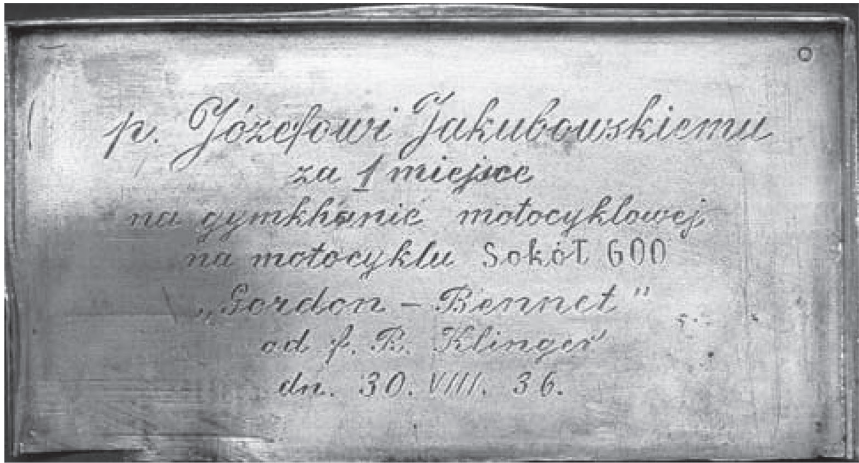 p. Józefowi Jakubowskiemu
za 1 miejsce
na gymkhanie motocyklowej
na motocyklu Sokół 600
„Gordon – Bennet”
od f. B. Klinger
dn. 30. VIII. 36.